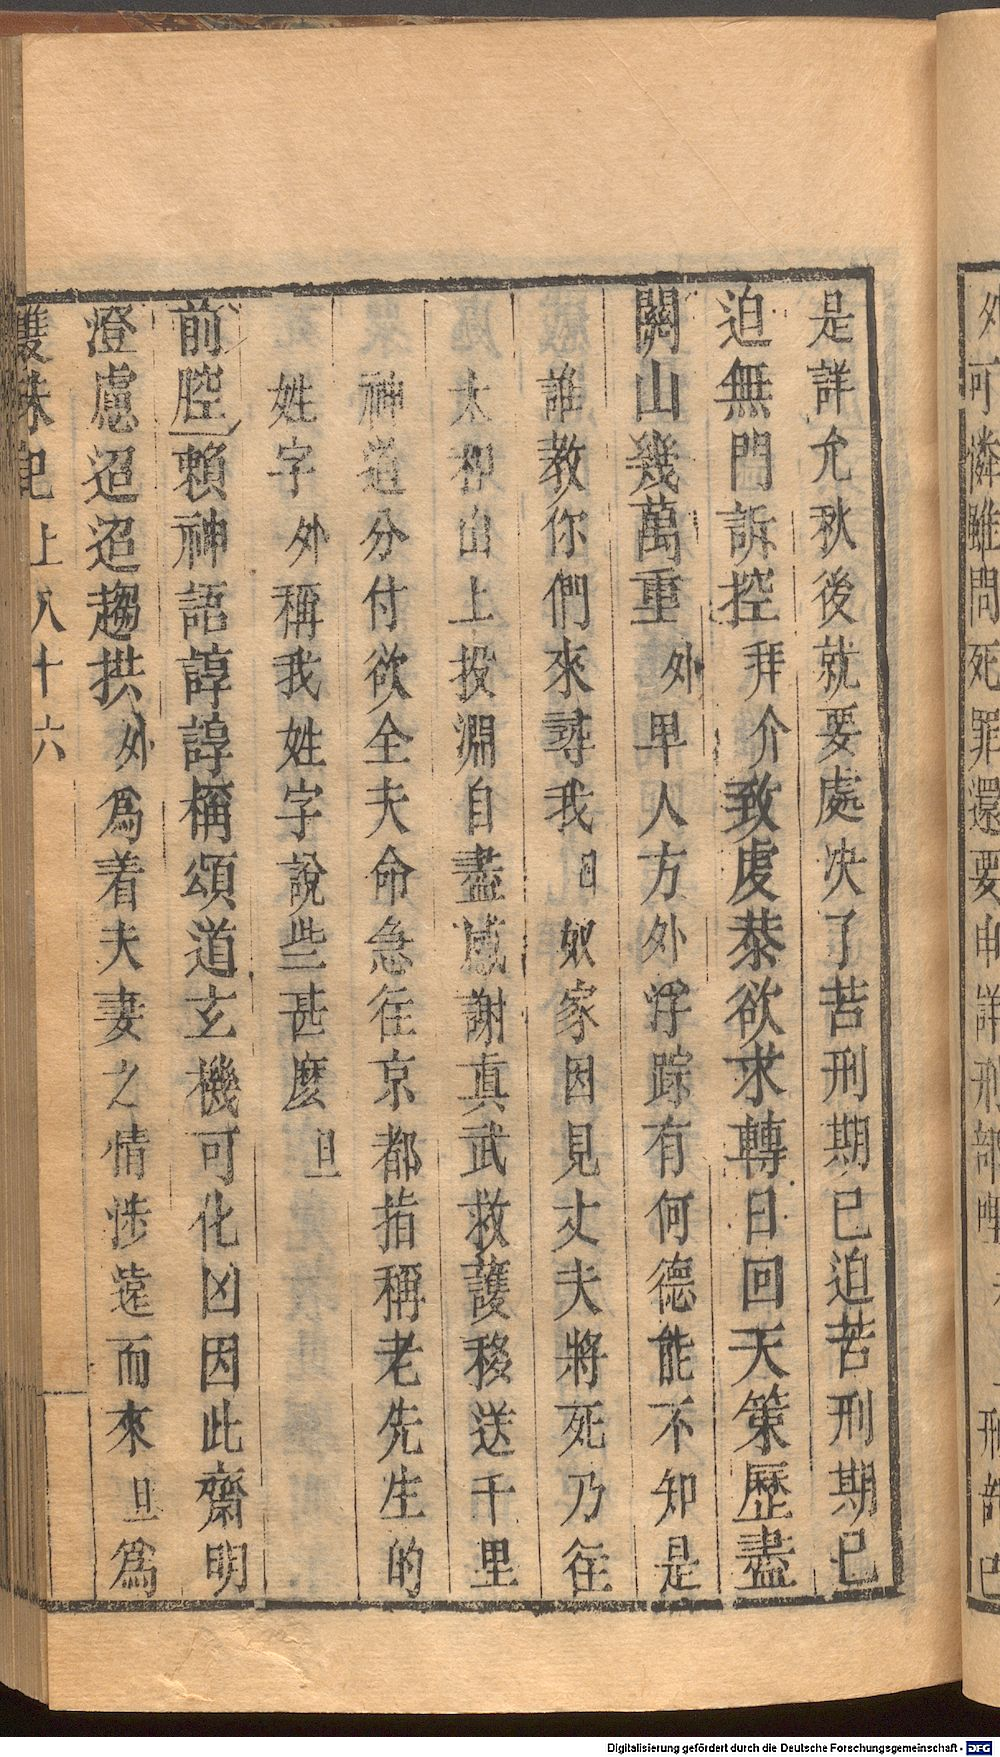 是詳允秋後就要處决了苦刑期已迫苦刑期已
迫無門訴控拜介致虔恭欲求轉日回天策歷盡
關山幾萬重外早人方外浮踪有何德能不知是
誰教你們來尋我旦奴家因見丈夫將死乃往
太和山上投淵自盡感謝真武救護移送千里
神道分付欲全夫命急往京都指稱老先生的
姓字外稱我姓字說些甚麼旦
前腔賴神語諄諄稱頌道玄機可化凶因此齋明
澄慮迢迢趨拱外爲着夫妻之情涉遠而來旦爲
雙珠記上八十六
外可憐雖問死罪還要申詳刑部
刑部已
Digitalisierung gefördert durch die Deutsche Forschungsgemeinschaft - DFG